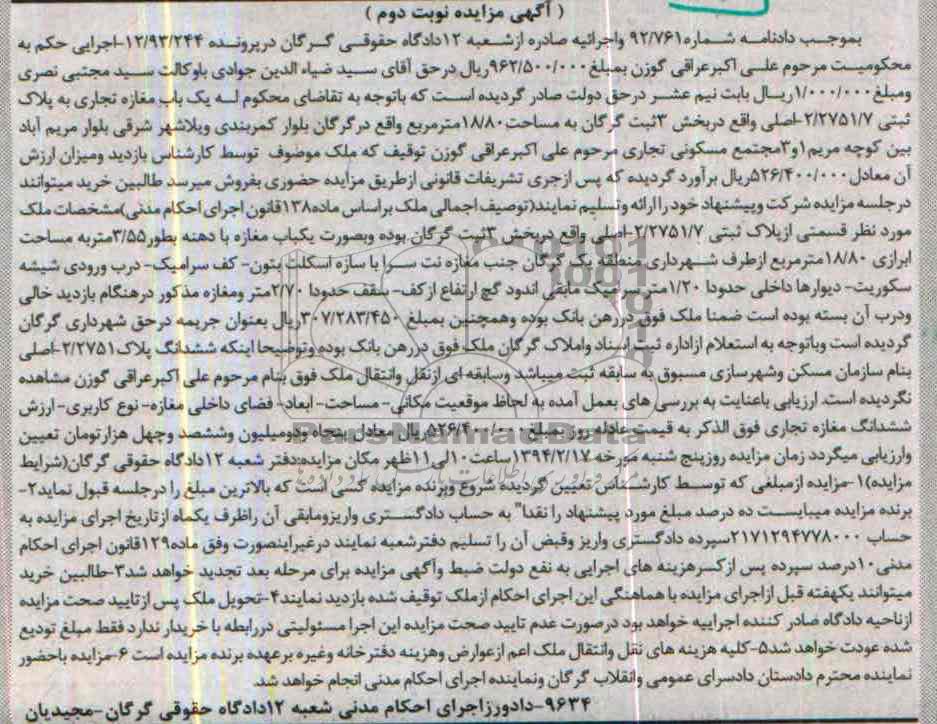 ( آگهی مزایده نوبت دوم )
بموجب دادنامه شماره ۹۲/۷۶۱ واجرائیه صادره ازشعبه ۱۲دادگاه حقوقی گرگان درپرونده ۱۲/۹۳/۲۴۴-اجرایی حکم به
محکومیت مرحوم علی اکبرعراقی گوزن بمبلغ ۹۶۲/۵۰۰/۰۰۰ریال درحق آقای سید ضیاءالدین جوادی باوکالت سید مجتبی نصری
ومبلغ ۱/۰۰۰/۰۰۰ریال بابت نیم عشر درحق دولت صادر گردیده است که باتوجه به تقاضای محکوم له یک باب مغازه تجاری به پلاک
ثبتی ۲/۲۷۵۱/۷-اصلی واقع دربخش ۳ثبت گرگان به مساحت۱۸/۸۰مترمربع واقع درگرگان بلوار کمربندی ویلاشهر شرقی بلوار مریم آباد
بین کوچه مریم۱و۳مجتمع مسکونی تجاری مرحوم علی اکبرعراقی گوزن توقیف که ملک موضوف توسط کارشناس بازدید ومیزان ارزش
آن معادل۵۲۶/۴۰۰/۰۰۰ریال برآورد گردیده که پس ازجری تشریفات قانونی ازطریق مزایده حضوری بفروش میرسد طالبین خرید میتوانند
درجلسه مزایده شرکت وپیشنهاد خود را ارائه وتسلیم نمایند(توصیف اجمالی ملک براساس ماده۱۳۸قانون اجرای احکام مدنی)مشخصات ملک
مورد نظر قسمتی ازپلاک ثبتی ۲/۲۷۵۱/۷-اصلی واقع دربخش ۳ثبت گرگان بوده وبصورت یکباب مغازه با دهنه بطور۳/۵۵متربه مساحت
ابرازی ۱۸/۸۰مترمربع ازطرف شهرداری منطقه یک گرگان جنب مغازه نت سرا با سازه اسکلت بتون- کف سرامیک- درب ورودی شیشه
سکوریت- دیوارها داخلی حدودا ۱/۲۰متر سرامیک مابقی اندود گچ ارتفاع ازکف- سقف حدودا ۲/۷۰متر ومغازه مذکور درهنگام بازدید خالی
ودرب آن بسته بوده است ضمنا ملک فوق دررهن بانک بوده وهمچنین بمبلغ ۳۰۷/۲۸۳/۴۵۰ریال بعنوان جریمه درحق شهرداری گرگان
گردیده است وباتوجه به استعلام ازاداره ثبت اسناد واملاک گرگان ملک فوق دررهن بانک بوده وتوضیحا اینکه ششدانگ پلاک۲/۲۷۵۱-اصلی
بنام سازمان مسکن وشهرسازی مسبوق به سابقه ثبت میباشد وسابقه ای ازنقل وانتقال ملک فوق بنام مرحوم علی اکبرعراقی گوزن مشاهده
نگردیده است. ارزیابی باعنایت به بررسی های بعمل آمده به لحاظ موقعیت مکانی- مساحت- ابعاد- فضای داخلی مغازه- نوع کاربری- ارزش
ششدانگ مغازه تجاری فوق الذکر به قیمت عادله روز مبلغ ۵۲۶/۴۰۰/۰۰۰ ریال معادل پنجاه ودومیلیون وششصد وچهل هزارتومان تعیین
وارزیابی میگردد زمان مزایده روزپنج شنبه مورخه ۱۳۹۴/۲/۱۷ساعت ۱۰الی۱۱ظهر مکان مزایده:دفتر شعبه ۱۲دادگاه حقوقی گرگان(شرایط
مزایده)۱-مزایده ازمبلغی که توسط کارشناس تعیین گردیده شروع وبرنده مزایده کسی است که بالاترین مبلغ را درجلسه قبول نماید۲-
برنده مزایده میبایست ده درصد مبلغ مورد پیشنهاد را نقدا" به حساب دادگستری واریزومابقی آن راظرف یکماه ازتاریخ اجرای مزایده به
حساب ۲۱۷۱۲۹۴۷۷۸۰۰۰سپرده دادگستری واریز وقبض آن را تسلیم دفترشعبه نمایند درغیراینصورت وفق ماده۱۲۹قانون اجرای احکام
مدنی۱۰درصد سپرده پس ازکسرهزینه های اجرایی به نفع دولت ضبط وآگهی مزایده برای مرحله بعد تجدید خواهد شد۳-طالبین خرید
میتوانند یکهفته قبل ازاجرای مزایده با هماهنگی این اجرای احکام ازملک توقیف شده بازدید نمایند۴-تحویل ملک پس ازتایید صحت مزایده
ازناحیه دادگاه صادر کننده اجراییه خواهد بود درصورت عدم تایید صحت مزایده این اجرا مسئولیتی دررابطه با خریدار ندارد فقط مبلغ تودیع
شده عودت خواهد شد۵-کلیه هزینه های نقل وانتقال ملک اعم ازعوارض وهزینه دفترخانه وغیره برعهده برنده مزایده است ۶-مزایده باحضور
نماینده محترم دادستان دادسرای عمومی وانقلاب گرگان ونماینده اجرای احکام مدنی انجام خواهد شد.
۹۶۳۴-دادورزاجرای احکام مدنی شعبه ۱۲دادگاه حقوقی گرگان -مجیدیان
ParsNamadData